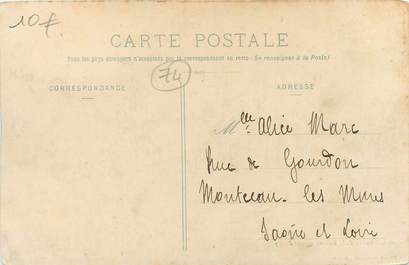 10F
CARTE POSTALE
Tous les pays étrangers n'acceptent pas la correspondance au recto (Se renseigner à la Poste)
74
CORRESPONDANCE
ADRESSE
Melle Alice Marc
Rue de Gourdon
Montceau-les Mines
Saône et Loire